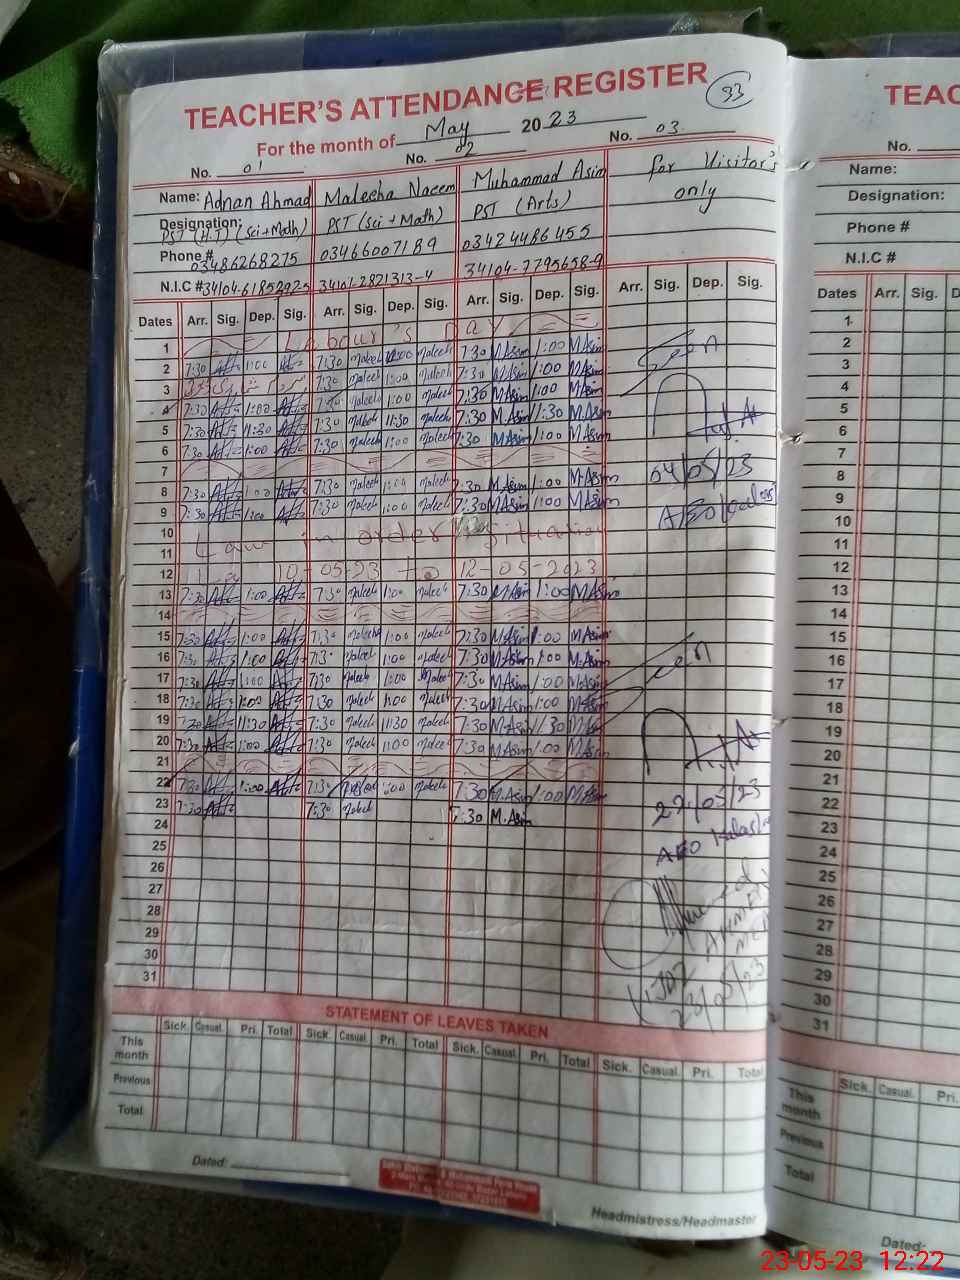 TEACHER'S ATTENDANCE REGISTER
33
For the month of May 2023
No. 01 No. 02 No. 03
Name: Adnan Ahmad Maleeha Naeem Muhammad Asim for Visitor's only
Designation: PST (H.T) (Sci+Math) PST (Sci+Math) PST (Arts)
Phone # 03486268275 03466007189 03424486455
N.I.C # 34101-2821313-4 34104-7795658-9
Dates Arr. Sig. Dep. Sig. Arr. Sig. Dep. Sig. Arr. Sig. Dep. Sig. Arr. Sig. Dep. Sig.
1 Labour's Day
2 7:30 1:00 7:30 Maleeh 1:00 Maleeh 7:30 M.Asim 1:00 M.Asim
3 7:30 Maleeh 1:00 Maleeh 7:30 M.Asim 1:00 M.Asim
4 7:30 1:00 7:30 Maleeh 1:00 Maleeh 7:30 M.Asim 1:00 M.Asim
5 7:30 11:30 7:30 Maleeh 11:30 Maleeh 7:30 M.Asim 11:30 M.Asim
6 7:30 1:00 7:30 Maleeh 1:00 Maleeh 7:30 M.Asim 1:00 M.Asim
7
8 7:30 1:00 7:30 Maleeh 1:00 Maleeh 7:30 M.Asim 1:00 M.Asim
9 7:30 1:00 7:30 Maleeh 1:00 Maleeh 7:30 M.Asim 1:00 M.Asim
10
11 Law in order situation
12 10-05-23 to 12-05-2023
13 7:30 1:00 7:30 Maleeh 1:00 Maleeh 7:30 M.Asim 1:00 M.Asim
14
15 7:30 1:00 7:30 Maleeha 1:00 Maleeh 7:30 M.Asim 1:00 M.Asim
16 7:30 1:00 7:30 Maleeh 1:00 Maleeh 7:30 M.Asim 1:00 M.Asim
17 7:30 1:00 7:30 Maleeh 1:00 Maleeh 7:30 M.Asim 1:00 M.Asim
18 7:30 1:00 7:30 Maleeh 1:00 Maleeh 7:30 M.Asim 1:00 M.Asim
19 7:30 11:30 7:30 Maleeh 11:30 Maleeh 7:30 M.Asim 11:30 M.Asim
20 7:30 1:00 7:30 Maleeh 1:00 Maleeh 7:30 M.Asim 1:00 M.Asim
21
22 7:30 1:00 7:30 1:00 Maleeh 7:30 M.Asim 1:00 M.Asim
23 7:30 7:30 Maleeh 7:30 M.Asim
24
25
26
27
28
29
30
31
Seen
04/05/23
AEO
Seen
22/05/23
AEO
23/05/23
STATEMENT OF LEAVES TAKEN
Sick. Casual. Pri. Total Sick. Casual. Pri. Total Sick. Casual. Pri. Total Sick. Casual. Pri. Total
This month
Previous
Total
Dated:
Headmistress/Headmaster
TEAC
No.
Name:
Designation:
Phone #
N.I.C #
Dates Arr. Sig. De
1
2
3
4
5
6
7
8
9
10
11
12
13
14
15
16
17
18
19
20
21
22
23
24
25
26
27
28
29
30
31
Sick. Casual. Pri.
This month
Previous
Total
Dated:
23-05-23 12:22